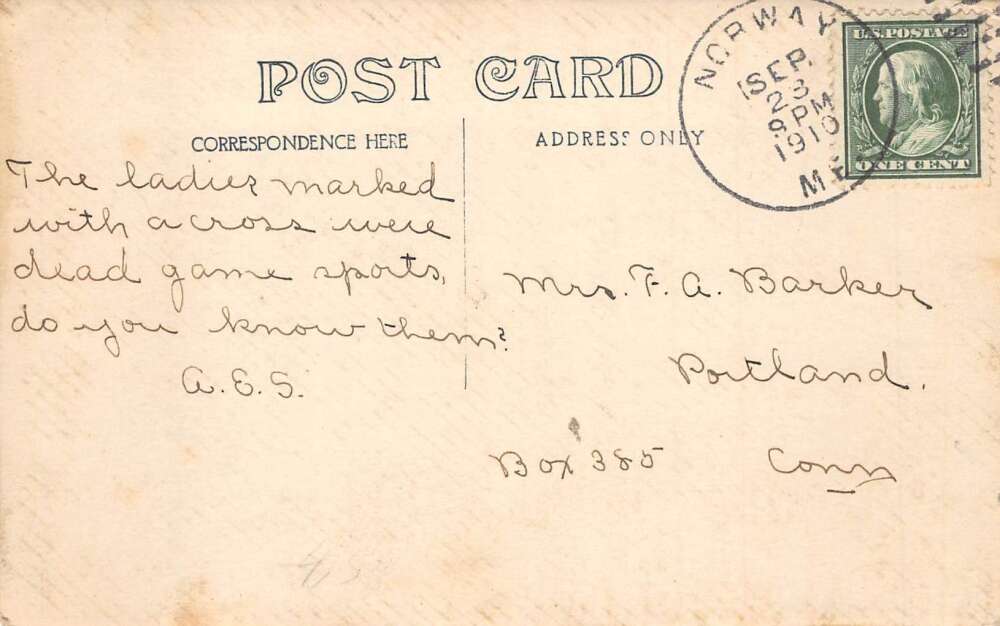 POST CARD
CORRESPONDENCE HERE
ADDRESS ONLY
NORWAY
SEP.
23
8 PM
1910
ME
U.S. POSTAGE
ONE CENT
The ladies marked
with a cross were
dead game sports,
do you know them?
A.E.S.
Mrs. F. A. Barker
Portland.
Box 385 Conn